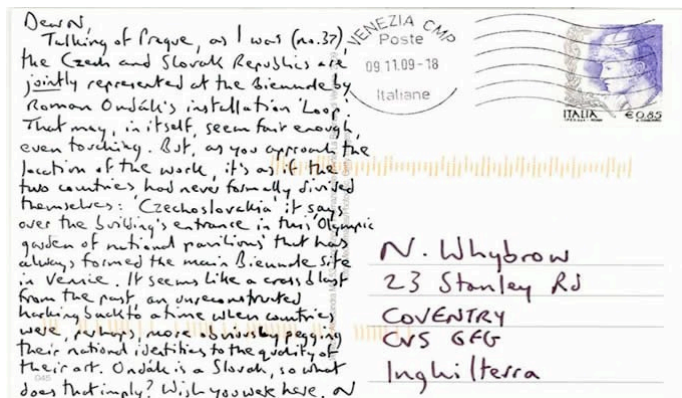 Dear N,
Talking of Prague, as I was (no.37),
the Czech and Slovak Republics are
jointly represented at the Biennale by
Roman Ondák's installation 'Loop'.
That may, in itself, seem fair enough,
even touching. But, as you approach the
location of the work, it's as if the
two countries had never formally divided
themselves: 'Czechoslovakia' it says
over the building's entrance in this 'Olympic
garden of national pavilions' that has
always formed the main Biennale site
in Venice. It seems like a crass blast
from the past, an unreconstructed
harking back to a time when countries
were, perhaps, more obviously pegging
their national identities to the quality of
their art. Ondák is a Slovak, so what
does that imply? Wish you were here, N
045
VENEZIA CMP
Poste
09.11.09-18
Italiane
ITALIA
€0,85
N. Whybrow
23 Stanley Rd
COVENTRY
CV5 6FG
Inghilterra